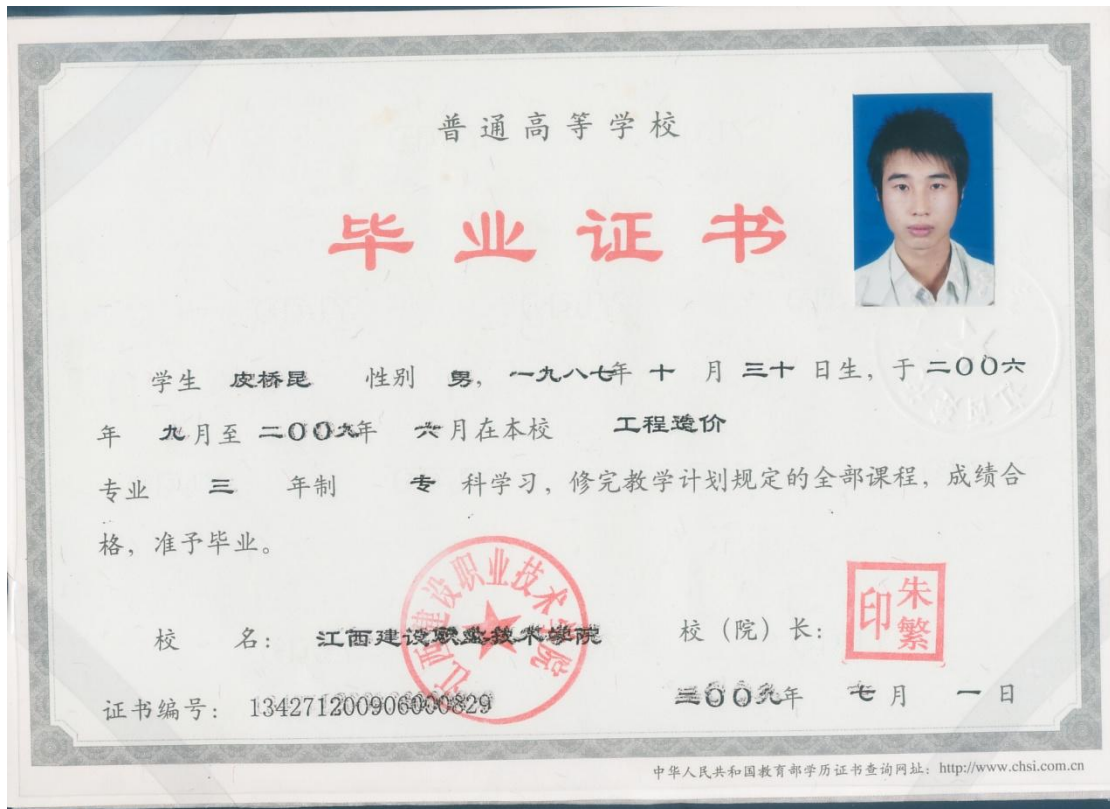 普通高等学校
毕业证书
学生 皮桥昆 性别 男，一九八七年 十 月 三十 日生，于 二〇〇六
年 九月至 二〇〇九年 六月在本校 工程造价
专业 三 年制 专 科学习，修完教学计划规定的全部课程，成绩合
格，准予毕业。
江西建设职业技术学院
校 名： 江西建设职业技术学院 校（院）长：
朱繁印
证书编号： 134271200906000829 二〇〇九年 七 月 一 日
中华人民共和国教育部学历证书查询网址：http://www.chsi.com.cn